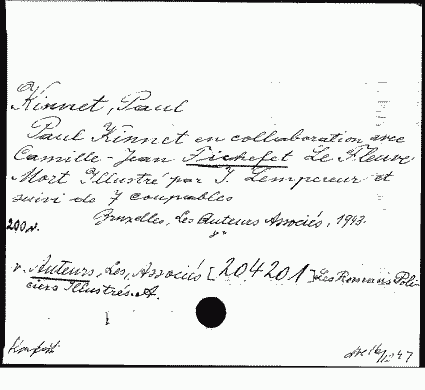 Kinnet, Paul
Paul Kinnet en collaboration avec
Camille-Jean Fichefet Le Fleuve
Mort Illustré par J. Lempereur et
suivi de 7 coupables
Bruxelles, Les Auteurs Associés, 1943.
200 v.
v. Auteurs, Les, Associés [204201] Les Romans Poli-
ciers Illustrés. A.